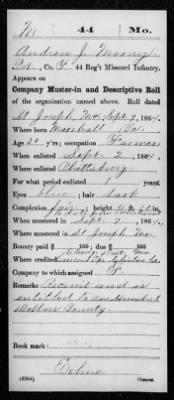 M 44 Mo.
Andrew J. Mooney
Pvt., Co. F, 44 Reg't Missouri Infantry.
Appears on
Company Muster-in and Descriptive Roll
of the organization named above. Roll dated
St Joseph Mo. Sept 9, 1864.
Where born Marshall
Age 20 y'rs; occupation Farmer
When enlisted Sept. 2, 1864.
Where enlisted Plattsburg
For what period enlisted 1 years.
Eyes blue; hair dark
Complexion fair; height 5 ft. in.
When mustered in Sept. 7, 1864.
Where mustered in St Joseph Mo.
Bounty paid $ 100; due $ 100
Where credited
Company to which assigned F
Remarks: Recruit and is
entitled to one hundred
dollars bounty
Book mark:
(356d) Copyist.